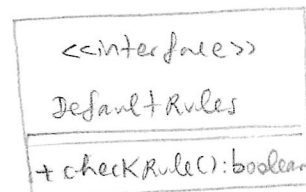 <<interface>>
DefaultRules
+ checkRule(): boolean